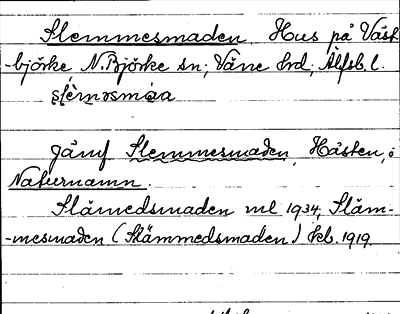 Slemmesmaden Hus på Väst-
-björke, N. Björke sn; Väne hrd, Älfsb. l.
Jämf Slemmesmaden, Håsten, i
Naturnamn.
Slämedsmaden ml 1934, Släm-
-mesmaden (Slämmedsmaden) Jkb. 1919.